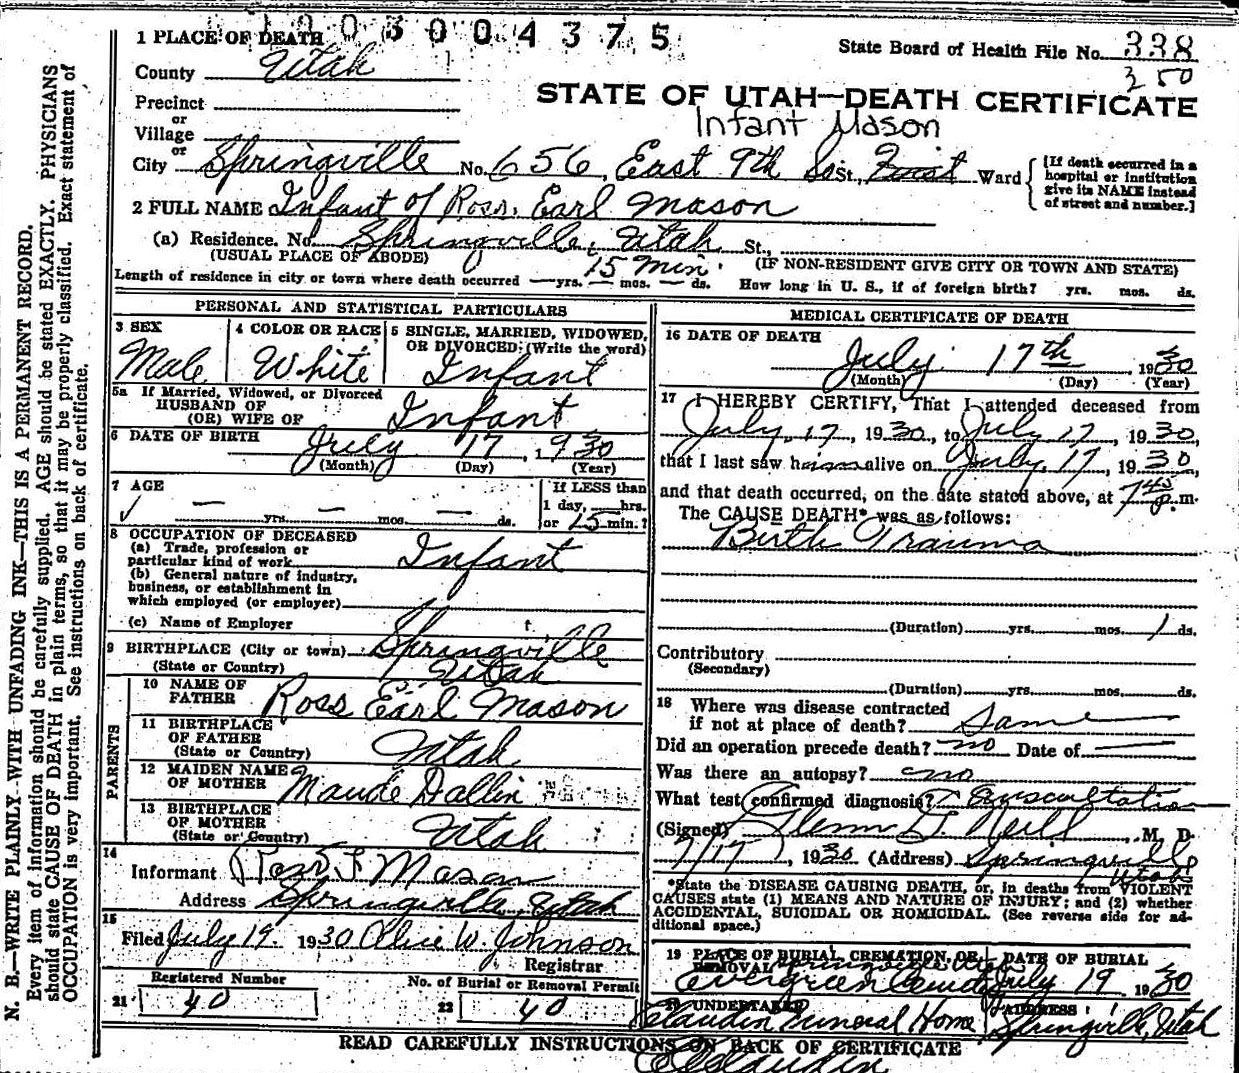 3004375
1 PLACE OF DEATH
State Board of Health File No. 338
County Utah
350
Precinct
STATE OF UTAH—DEATH CERTIFICATE
or
Village
Infant Mason
or
City Springville No. 656, East 9th So St., First Ward
[If death occurred in a
hospital or institution
give its NAME instead
of street and number.]
2 FULL NAME Infant of Ross Earl Mason
(a) Residence. No. Springville, Utah St.,
(USUAL PLACE OF ABODE) (IF NON-RESIDENT GIVE CITY OR TOWN AND STATE)
15 Min.
Length of residence in city or town where death occurred — yrs. — mos. — ds. How long in U. S., if of foreign birth? yrs. mos. ds.
PERSONAL AND STATISTICAL PARTICULARS
3 SEX
Male
4 COLOR OR RACE
White
5 SINGLE, MARRIED, WIDOWED,
OR DIVORCED: (Write the word)
Infant
5a If Married, Widowed, or Divorced
HUSBAND OF
(OR) WIFE OF Infant
6 DATE OF BIRTH July 17, 1930
(Month) (Day) (Year)
7 AGE
— yrs. — mos. — ds.
If LESS than
1 day, — hrs.
or 15 min.?
8 OCCUPATION OF DECEASED
(a) Trade, profession or
particular kind of work Infant
(b) General nature of industry,
business, or establishment in
which employed (or employer)
(c) Name of Employer
9 BIRTHPLACE (City or town) Springville
(State or Country) Utah
PARENTS
10 NAME OF
FATHER Ross Earl Mason
11 BIRTHPLACE
OF FATHER
(State or Country) Utah
12 MAIDEN NAME
OF MOTHER Maude Dallin
13 BIRTHPLACE
OF MOTHER
(State or Country) Utah
14
Informant Mason
Address Springville, Utah
15
Filed July 19. 1930 Olive W. Johnson
Registrar
Registered Number
21 40
No. of Burial or Removal Permit
22 40
MEDICAL CERTIFICATE OF DEATH
16 DATE OF DEATH
July 17th 1930
(Month) (Day) (Year)
17 I HEREBY CERTIFY, That I attended deceased from
July, 17, 1930, to July 17, 1930,
that I last saw him alive on July, 17, 1930
and that death occurred, on the date stated above, at 7 45 p.m.
The CAUSE DEATH* was as follows:
Birth Trauma
(Duration) yrs. mos. 1 ds.
Contributory
(Secondary)
(Duration) yrs. mos. ds.
18 Where was disease contracted
if not at place of death? Same
Did an operation precede death? no Date of —
Was there an autopsy? no
What test confirmed diagnosis? Auscultation
(Signed) Glenn Neill, M. D.
7/17, 1930 (Address) Springville
Utah
*State the DISEASE CAUSING DEATH, or, in deaths from VIOLENT
CAUSES state (1) MEANS AND NATURE OF INJURY; and (2) whether
ACCIDENTAL, SUICIDAL OR HOMICIDAL. (See reverse side for ad-
ditional space.)
19 PLACE OF BURIAL, CREMATION, OR
REMOVAL Springville Utah
Evergreen
DATE OF BURIAL
July 19 1930
UNDERTAKER
Claudin Funeral Home
ADDRESS
Springville, Utah
READ CAREFULLY INSTRUCTIONS ON BACK OF CERTIFICATE
Claudin
N. B.—WRITE PLAINLY—WITH UNFADING INK—THIS IS A PERMANENT RECORD.
Every item of information should be carefully supplied. AGE should be stated EXACTLY. PHYSICIANS
should state CAUSE OF DEATH in plain terms, so that it may be properly classified. Exact statement of
OCCUPATION is very important. See instructions on back of certificate.